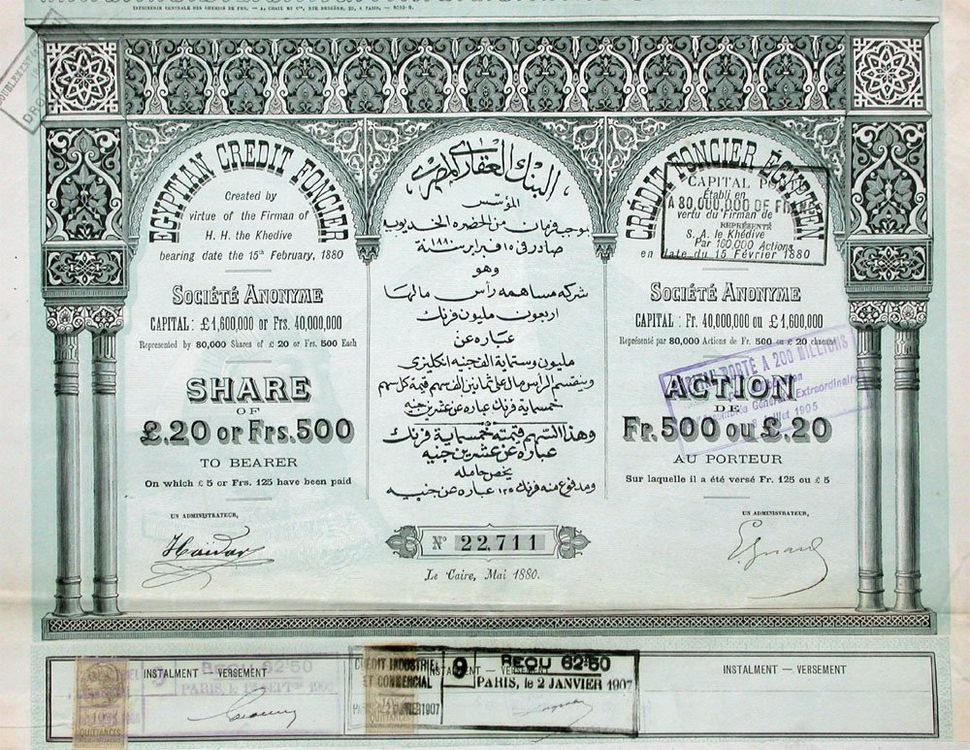 IMPRIMERIE CENTRALE DES CHEMINS DE FER. — A. CHAIX ET Cie, RUE BERGÈRE, 20, A PARIS. —
EGYPTIAN CREDIT FONCIER
Created by
virtue of the Firman of
H. H. the Khedive
bearing date the 15th February, 1880
SOCIÉTÉ ANONYME
CAPITAL : £1,600,000 or Frs. 40,000,000
Represented by 80,000 Shares of £ 20 or Frs. 500 Each
SHARE
OF
£.20 or Frs.500
TO BEARER
On which £ 5 or Frs. 125 have been paid
UN ADMINISTRATEUR,
Haidar
البنك العقارى المصرى
المؤسس
بموجب فرمان من الحضره الخديويه
صادر فى ١٥ فبراير سنة ١٨٨٠
وهو
شركه مساهمه رأس مالها
اربعون مليون فرنك
عباره عن
مليون وستماية الف جنيه انكليزى
وينقسم الرأس مال على ثمانين الف سهم قيمة كل سهم
خمسماية فرنك عباره عن عشرين جنيه
وهذا السهم قيمته خمسماية فرنك
عباره عن عشرين جنيه
يخص حامله
ومدفوع منه فرنك ١٢٥ عباره عن جنيه
No 22,711
Le Caire, Mai 1880.
CRÉDIT FONCIER ÉGYPTIEN
Établi en
vertu du Firman de
S. A. le Khédive
en date du 15 Février 1880
CAPITAL
A 80,000,000 DE FRANCS
REPRÉSENTÉ
Par 160,000 Actions
SOCIÉTÉ ANONYME
CAPITAL : Fr. 40,000,000 ou £ 1,600,000
Représenté par 80,000 Actions de Fr. 500 ou £ 20 chacune
CAPITAL PORTÉ A 200 MILLIONS
Assemblée Générale Extraordinaire
Juillet 1905
ACTION
DE
Fr. 500 ou £.20
AU PORTEUR
Sur laquelle il a été versé Fr. 125 ou £ 5
UN ADMINISTRATEUR,
INSTALMENT — VERSEMENT
9
REÇU 62.50
PARIS, le
QUITTANCES
INSTALMENT — VERSEMENT
CRÉDIT INDUSTRIEL
ET COMMERCIAL
9
REÇU 62.50
PARIS, le 2 JANVIER 1907
INSTALMENT — VERSEMENT